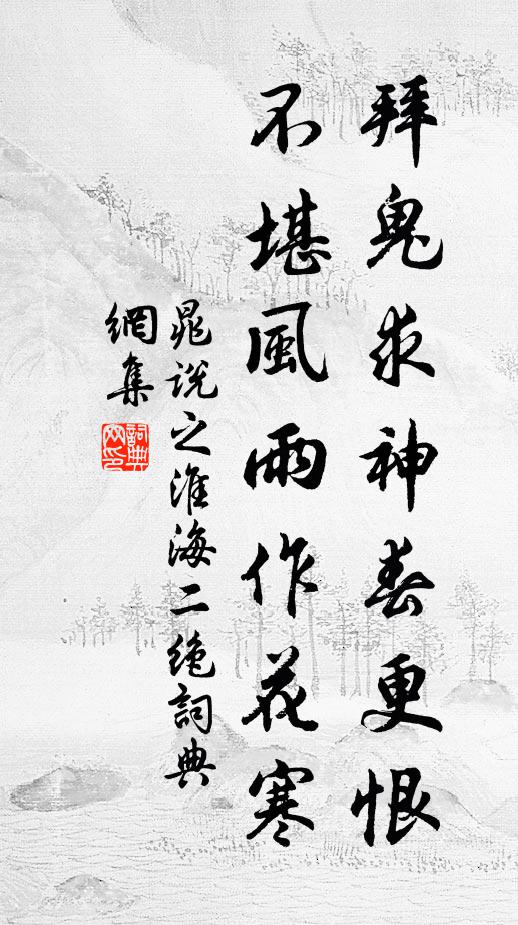 拜鬼求神春更恨
不堪風雨作花寒
晁說之淮海二絕詞典
網集
詞典
网印